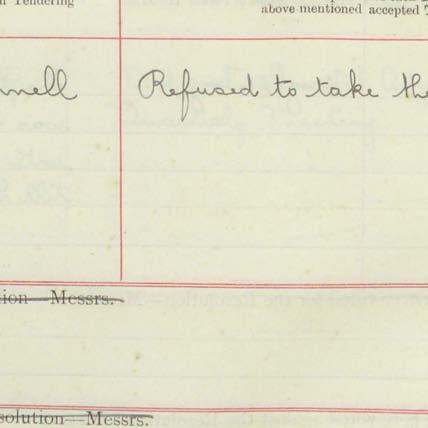 n Tendering
above mentioned accepted T
nnell Refused to take the
tion—Messrs.
solution—Messrs.